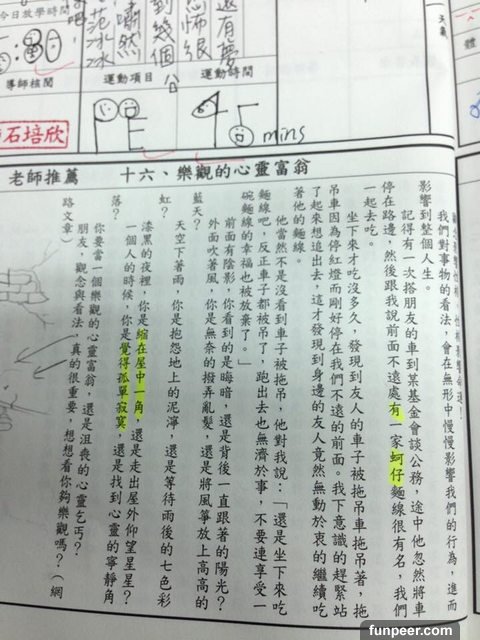 今日放學時間
天氣
體
還有夢
恐怖很
到幾個
嘯然
導師核閱
運動項目
運動時間
石培欣
PE
45 mins
老師推薦
十六、樂觀的心靈富翁
我們對事物的看法，會在無形中慢慢影響我們的行為，進而
影響到整個人生。
記得有一次搭朋友的車到某基金會談公務，途中他忽然將車
停在路邊，然後跟我說前面不遠處有一家蚵仔麵線很有名，我們
一起去吃。
坐下來才吃沒多久，發現到友人的車子被拖吊車拖吊著，拖
吊車因為停紅燈而剛好停在我們不遠的前面。我下意識的趕緊站
了起來想追出去，這才發現到身邊的友人竟然無動於衷的繼續吃
著他的麵線。
他當然不是沒看到車子被拖吊，他對我說：「還是坐下來吃
麵線吧，反正車子都被吊了，跑出去也無濟於事，不要連享受一
碗麵線的幸福也被放棄了。」
前面有陰影，你看到的是晦暗，還是背後一直跟著的陽光？
外面吹著風，你是無奈的撥弄亂髮，還是將風箏放上高高的
藍天？
天空下著雨，你是抱怨地上的泥濘，還是等待雨後的七色彩
虹？
漆黑的夜裡，你是縮在屋中一角，還是走出屋外仰望星星？
一個人的時候，你是覺得孤單寂寞，還是找到心靈的寧靜角
落？
你要當一個樂觀的心靈富翁，還是沮喪的心靈乞丐？
朋友，觀念與看法，真的很重要，想想看你夠樂觀嗎？（網
路文章）
funpeer.com